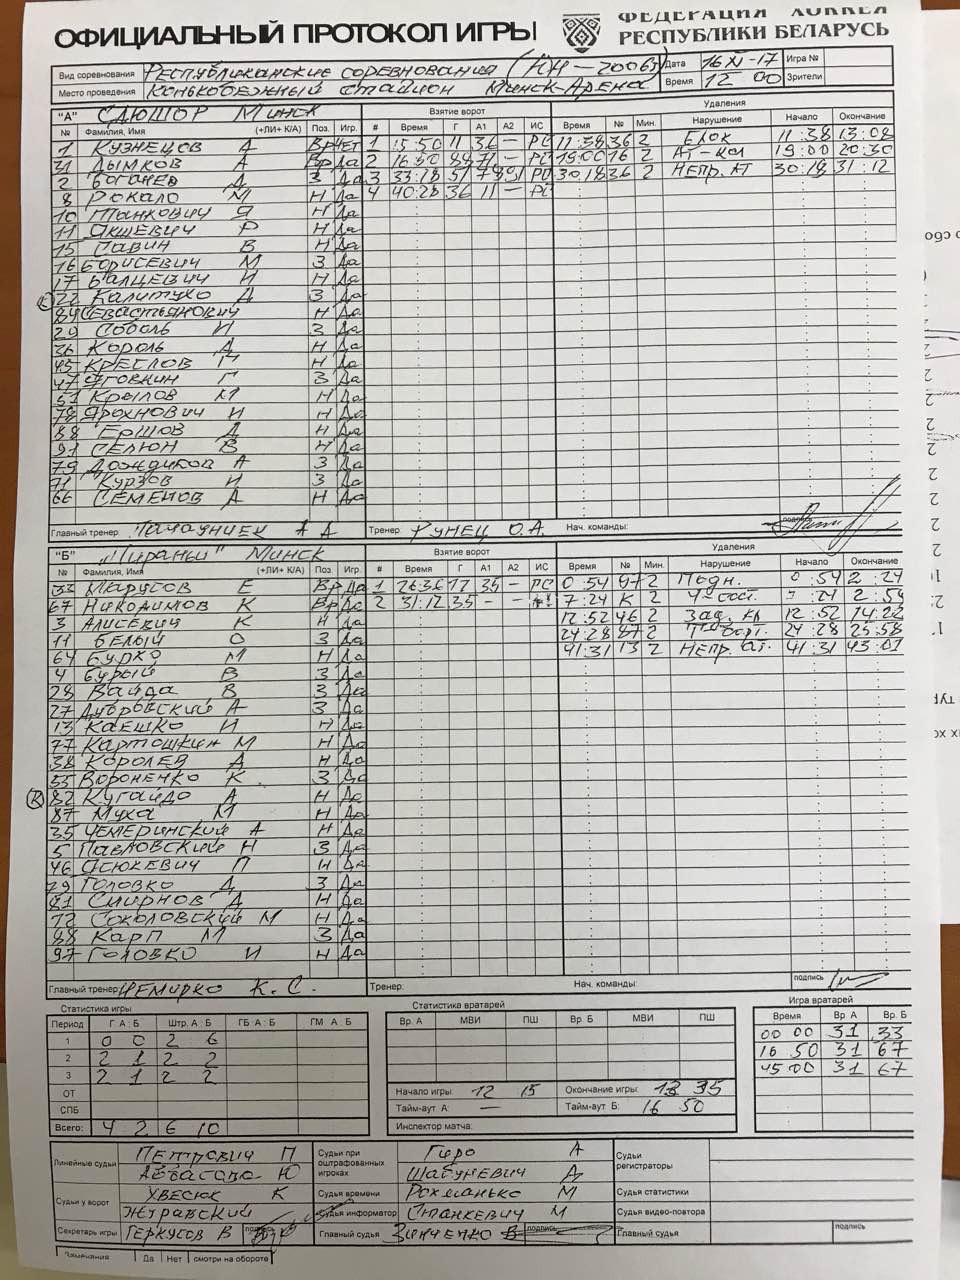 ОФИЦИАЛЬНЫЙ ПРОТОКОЛ ИГРЫ
ФЕДЕРАЦИЯ ХОККЕЯ
РЕСПУБЛИКИ БЕЛАРУСЬ
Вид соревнования РЕСПУБЛИКАНСКИЕ СОРЕВНОВАНИЯ Дата 16 XI-17 Игра №
Место проведения КОНЬКОБЕЖНЫЙ СТАДИОН МИНСК-АРЕНА Время 12 00 Зрители
"А" СДЮШОР МИНСК Взятие ворот Удаления
№ Фамилия, Имя (+ЛИ+ К/А) Поз. Игр. # Время Г А1 А2 ИС Время № Мин. Нарушение Начало Окончание
1 КУЗНЕЦОВ А Вр Нет 1 15:50 11 36 — РС 11:38 36 2 БЛОК 11:38 13:08
31 ДЫМКОВ А Вр Да 2 16:50 88 71 — РС 19:00 16 2 АТ-КОЛ 19:00 20:30
2 БОГАНЕВ Д З Да 3 33:18 51 78 91 РС 30:18 36 2 НЕПР. АТ 30:18 31:12
8 РОКАЛО М Н Да 4 40:28 36 11 — РС
10 ПАНКОВИЧ Я Н Да
11 ЯКШЕВИЧ Р Н Да
15 САВИН В Н Да
16 БОРИСЕВИЧ М З Да
17 БАЛЦЕВИЧ И Н Да
22 КАЛИТУХО Д З Да
84 СЕВАСТЬЯНОВИЧ Н Да
29 СОБОЛЬ И З Да
36 КОРОЛЬ Д Н Да
45 КРЕСЛОВ Г Н Да
47 ЯГОВКИН Г З Да
51 КРЫЛОВ М Н Да
78 ЯРОХНОВИЧ И Н Да
88 ЕРШОВ Д Н Да
91 СЕЛЮН В Н Да
79 ДОЖДИКОВ А З Да
71 КУРЗОВ И З Да
66 СЕМЕНОВ А Н Да
Главный тренер: А А Тренер: РУНЕЦ О.А. Нач. команды: подпись
"Б" "Пираньи" МИНСК Взятие ворот Удаления
№ Фамилия, Имя (+ЛИ+ К/А) Поз. Игр. # Время Г А1 А2 ИС Время № Мин. Нарушение Начало Окончание
33 МАРУСОВ Е Вр Да 1 26:36 77 35 — РС 0:54 97 2 ПОДН. 0:54 2:24
67 НИКОДИМОВ К Вр Да 2 31:12 35 — — 7:24 К 2
3 АЛИСЕВИЧ К Н Да 12:52 46 2 ЗАД. КЛ 12:52 14:22
11 БЕЛЫЙ О З Да 24:28 87 2 24:28 25:58
64 БУРКО М Н Да 41:31 13 2 НЕПР. АТ. 41:31 43:01
4 БУРЫЙ В З Да
28 ВАЙДА В З Да
27 ДУБРОВСКИЙ А З Да
13 КАЕШКО И Н Да
77 КАРТОШКИН М Н Да
38 КОРОЛЕВ А Н Да
55 ВОРОНЕНКО К З Да
82 КУГАЙДО А Н Да
87 МУХА М Н Да
35 ЧЕМЕРИНСКИЙ А Н Да
5 ПАВЛОВСКИЙ Н З Да
46 ЯСЮКЕВИЧ П Н Да
29 ГОЛОВКО Д З Да
81 СМИРНОВ А Н Да
72 СОКОЛОВСКИЙ М Н Да
88 КАРП М З Да
97 ГОЛОВКО И Н Да
Главный тренер: НЕМИРКО К.С. Тренер: Нач. команды: подпись
Статистика игры Статистика вратарей Игра вратарей
Период Г А:Б Штр. А:Б ГБ А:Б ГМ А:Б Вр. А МВИ ПШ Вр. Б МВИ ПШ Время Вр. А Вр. Б
1 0 0 2 6 00 00 31 33
2 2 1 2 2 16 50 31 67
3 2 1 2 2 45 00 31 67
ОТ Начало игры: 12 15 Окончание игры: 13 35
СПБ Тайм-аут А: — Тайм-аут Б: 16 50
Всего: 4 2 6 10 Инспектор матча:
Линейные судьи ПЕТРОВИЧ П Судьи при оштрафованных игроках ГИРО А Судьи регистраторы
Ю ШАБУНЕВИЧ А
Судьи у ворот ХВЕСЮК К Судья времени РОХМАНЬКО М Судья статистики
ЖУРАВСКИЙ Судья информатор СТАНКЕВИЧ М Судья видео-повтора
Секретарь игры ГЕРКУСОВ В подпись Главный судья ЗИНЧЕНКО В подпись Главный судья подпись
Замечания Да Нет смотри на обороте